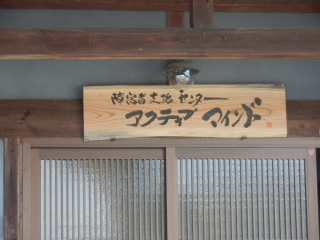 障害者支援センター
アクティブ マインド